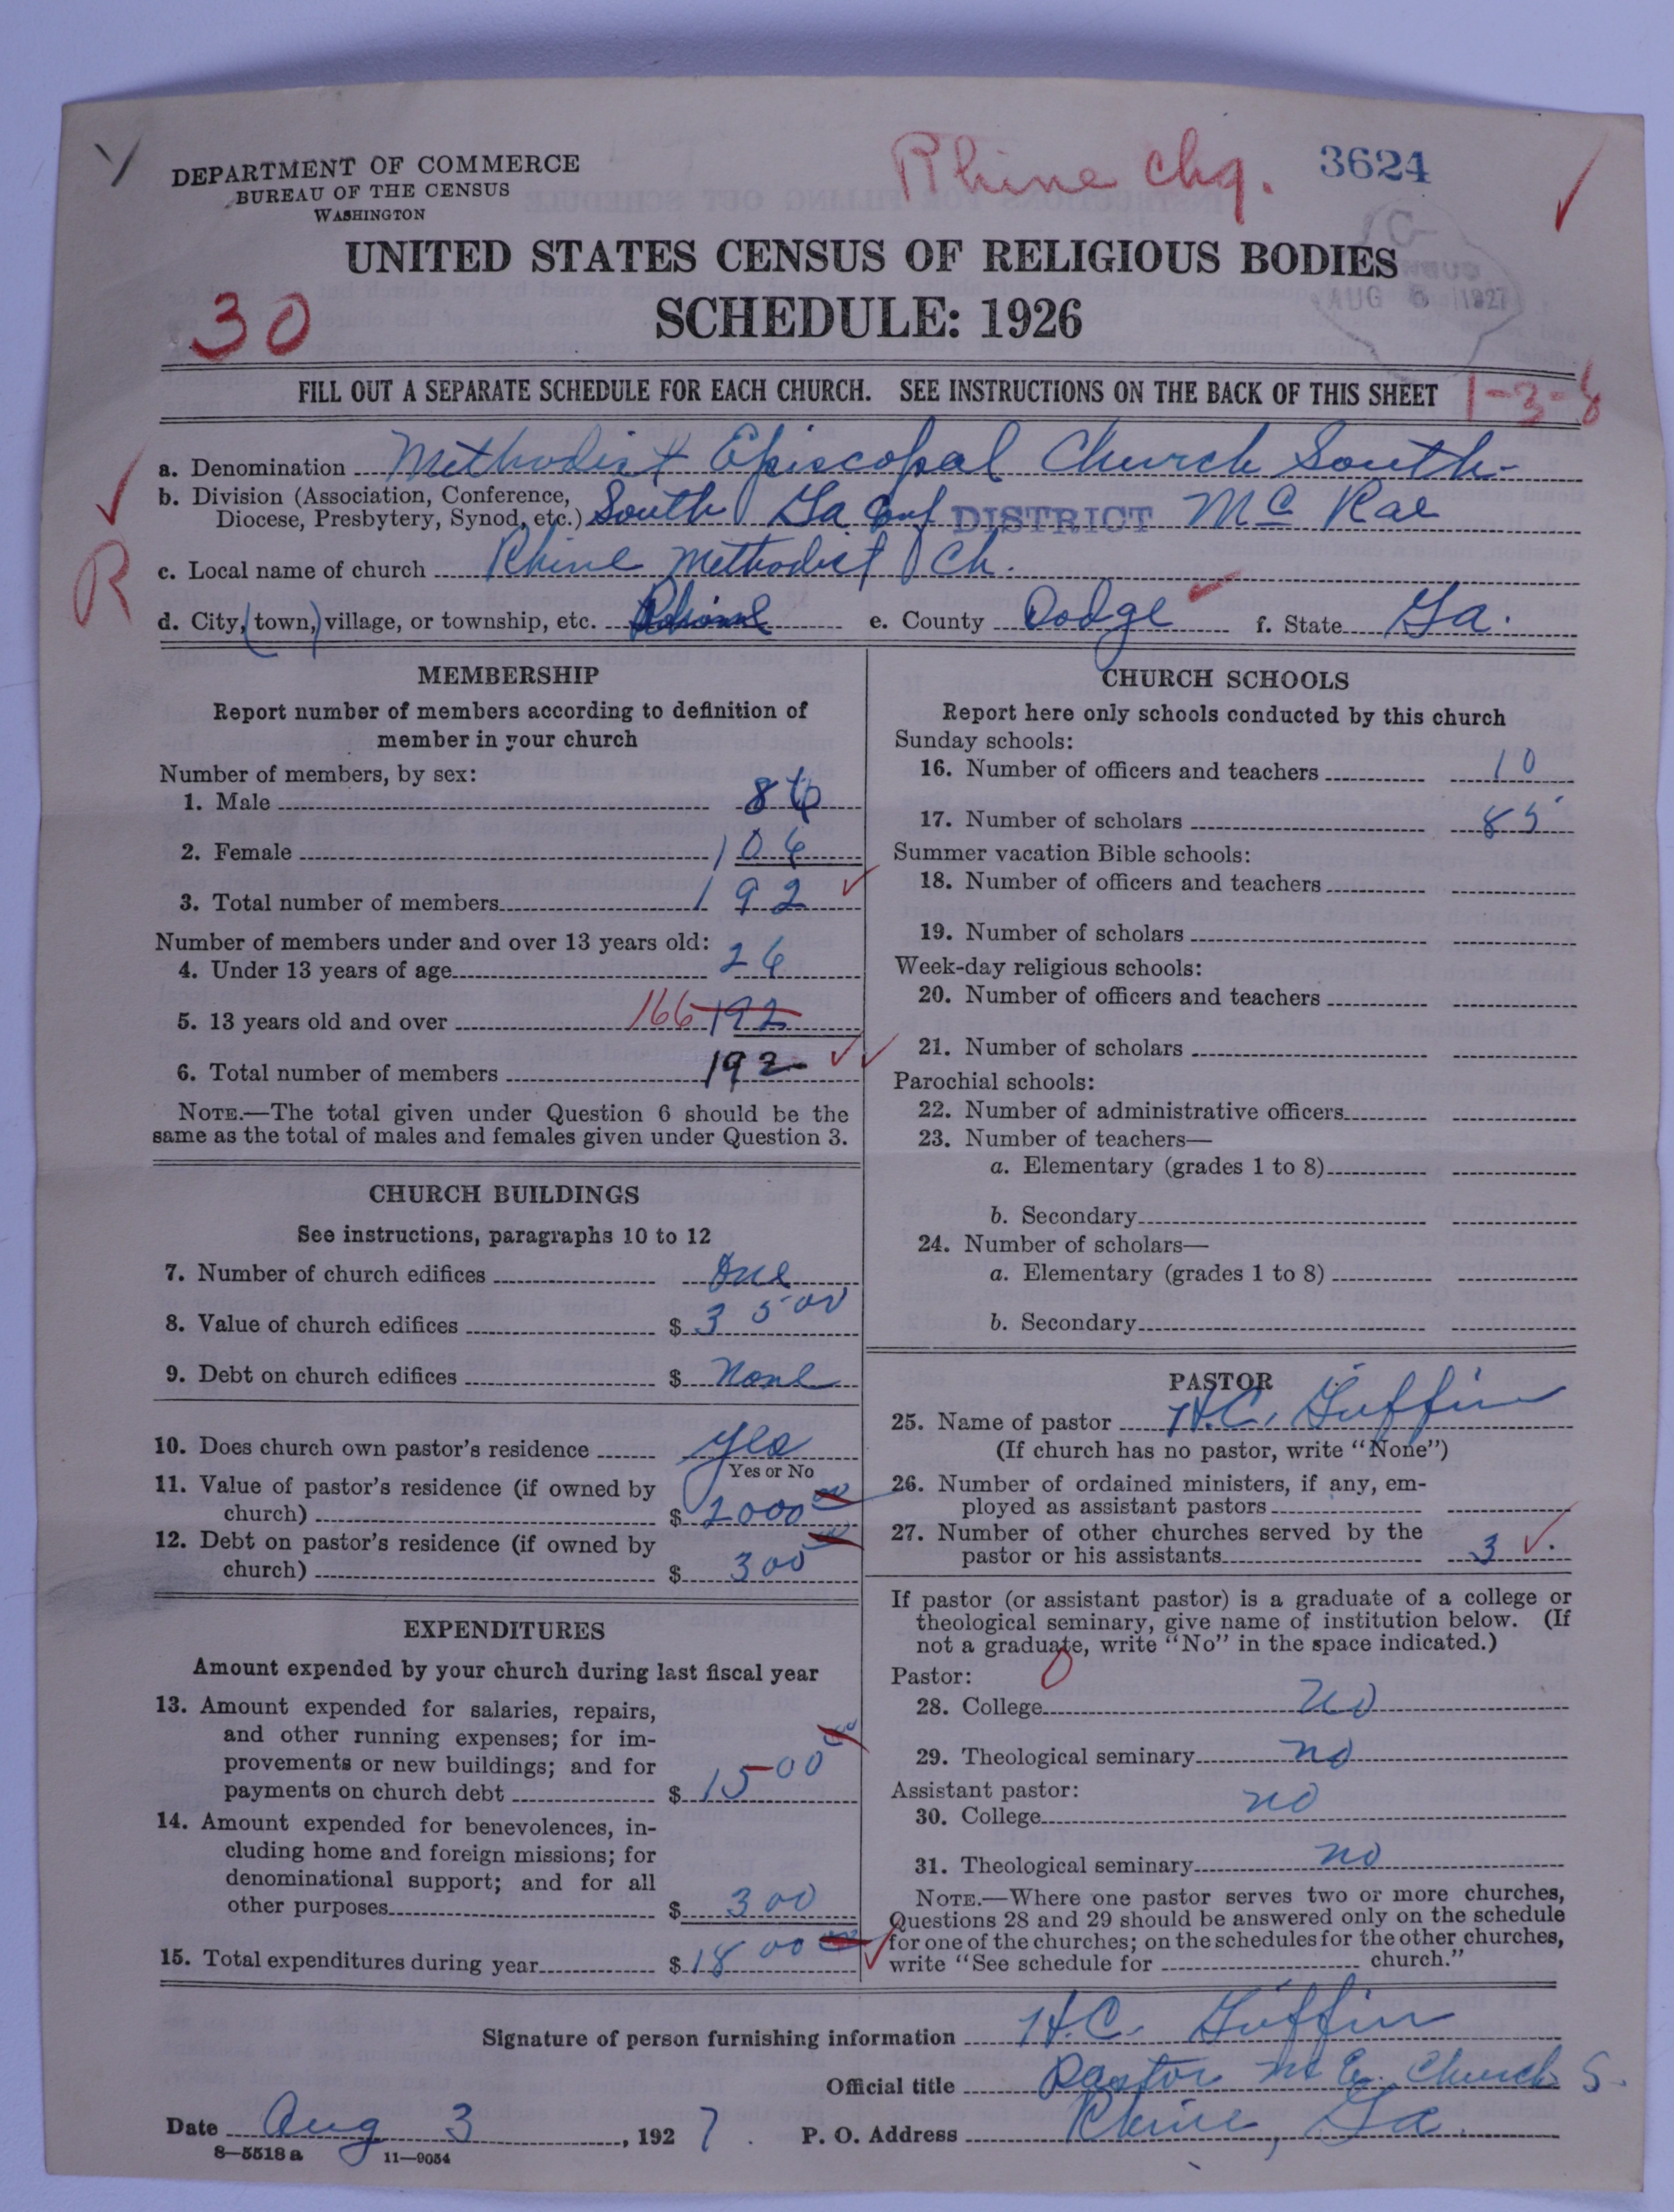 Rhine Chg.
3624
DEPARTMENT OF COMMERCE
BUREAU OF THE CENSUS
WASHINGTON
UNITED STATES CENSUS OF RELIGIOUS BODIES
SCHEDULE: 1926
AUG 5 1927
30
FILL OUT A SEPARATE SCHEDULE FOR EACH CHURCH. SEE INSTRUCTIONS ON THE BACK OF THIS SHEET
1-3-8
a. Denomination Methodist Episcopal Church South
b. Division (Association, Conference,
Diocese, Presbytery, Synod, etc.) South Ga Conf DISTRICT Mc Rae
R
c. Local name of church Rhine Methodist Ch.
d. City, (town,) village, or township, etc. e. County Dodge f. State Ga.
MEMBERSHIP
Report number of members according to definition of
member in your church
Number of members, by sex:
1. Male 86
2. Female 106
3. Total number of members 192
Number of members under and over 13 years old:
4. Under 13 years of age 26
5. 13 years old and over 166 192
6. Total number of members 192
NOTE.—The total given under Question 6 should be the
same as the total of males and females given under Question 3.
CHURCH BUILDINGS
See instructions, paragraphs 10 to 12
7. Number of church edifices One
8. Value of church edifices $ 3500
9. Debt on church edifices $ None
10. Does church own pastor's residence yes
Yes or No
11. Value of pastor's residence (if owned by
church) $ 2000 00
12. Debt on pastor's residence (if owned by
church) $ 300 00
EXPENDITURES
Amount expended by your church during last fiscal year
13. Amount expended for salaries, repairs,
and other running expenses; for im-
provements or new buildings; and for
payments on church debt $ 1500 00
14. Amount expended for benevolences, in-
cluding home and foreign missions; for
denominational support; and for all
other purposes $ 300
15. Total expenditures during year $ 1800 00
CHURCH SCHOOLS
Report here only schools conducted by this church
Sunday schools:
16. Number of officers and teachers 10
17. Number of scholars 85
Summer vacation Bible schools:
18. Number of officers and teachers
19. Number of scholars
Week-day religious schools:
20. Number of officers and teachers
21. Number of scholars
Parochial schools:
22. Number of administrative officers
23. Number of teachers—
a. Elementary (grades 1 to 8)
b. Secondary
24. Number of scholars—
a. Elementary (grades 1 to 8)
b. Secondary
PASTOR
25. Name of pastor H.C. Griffin
(If church has no pastor, write "None")
26. Number of ordained ministers, if any, em-
ployed as assistant pastors
27. Number of other churches served by the
pastor or his assistants 3
If pastor (or assistant pastor) is a graduate of a college or
theological seminary, give name of institution below. (If
not a graduate, write "No" in the space indicated.)
Pastor: 0
28. College no
29. Theological seminary no
Assistant pastor:
30. College no
31. Theological seminary no
NOTE.—Where one pastor serves two or more churches,
Questions 28 and 29 should be answered only on the schedule
for one of the churches; on the schedules for the other churches,
write "See schedule for church."
Signature of person furnishing information H.C. Griffin
Official title Pastor M E. Church S.
Date Aug 3, 1927. P. O. Address Rhine, Ga.
8—5518 a 11—9054